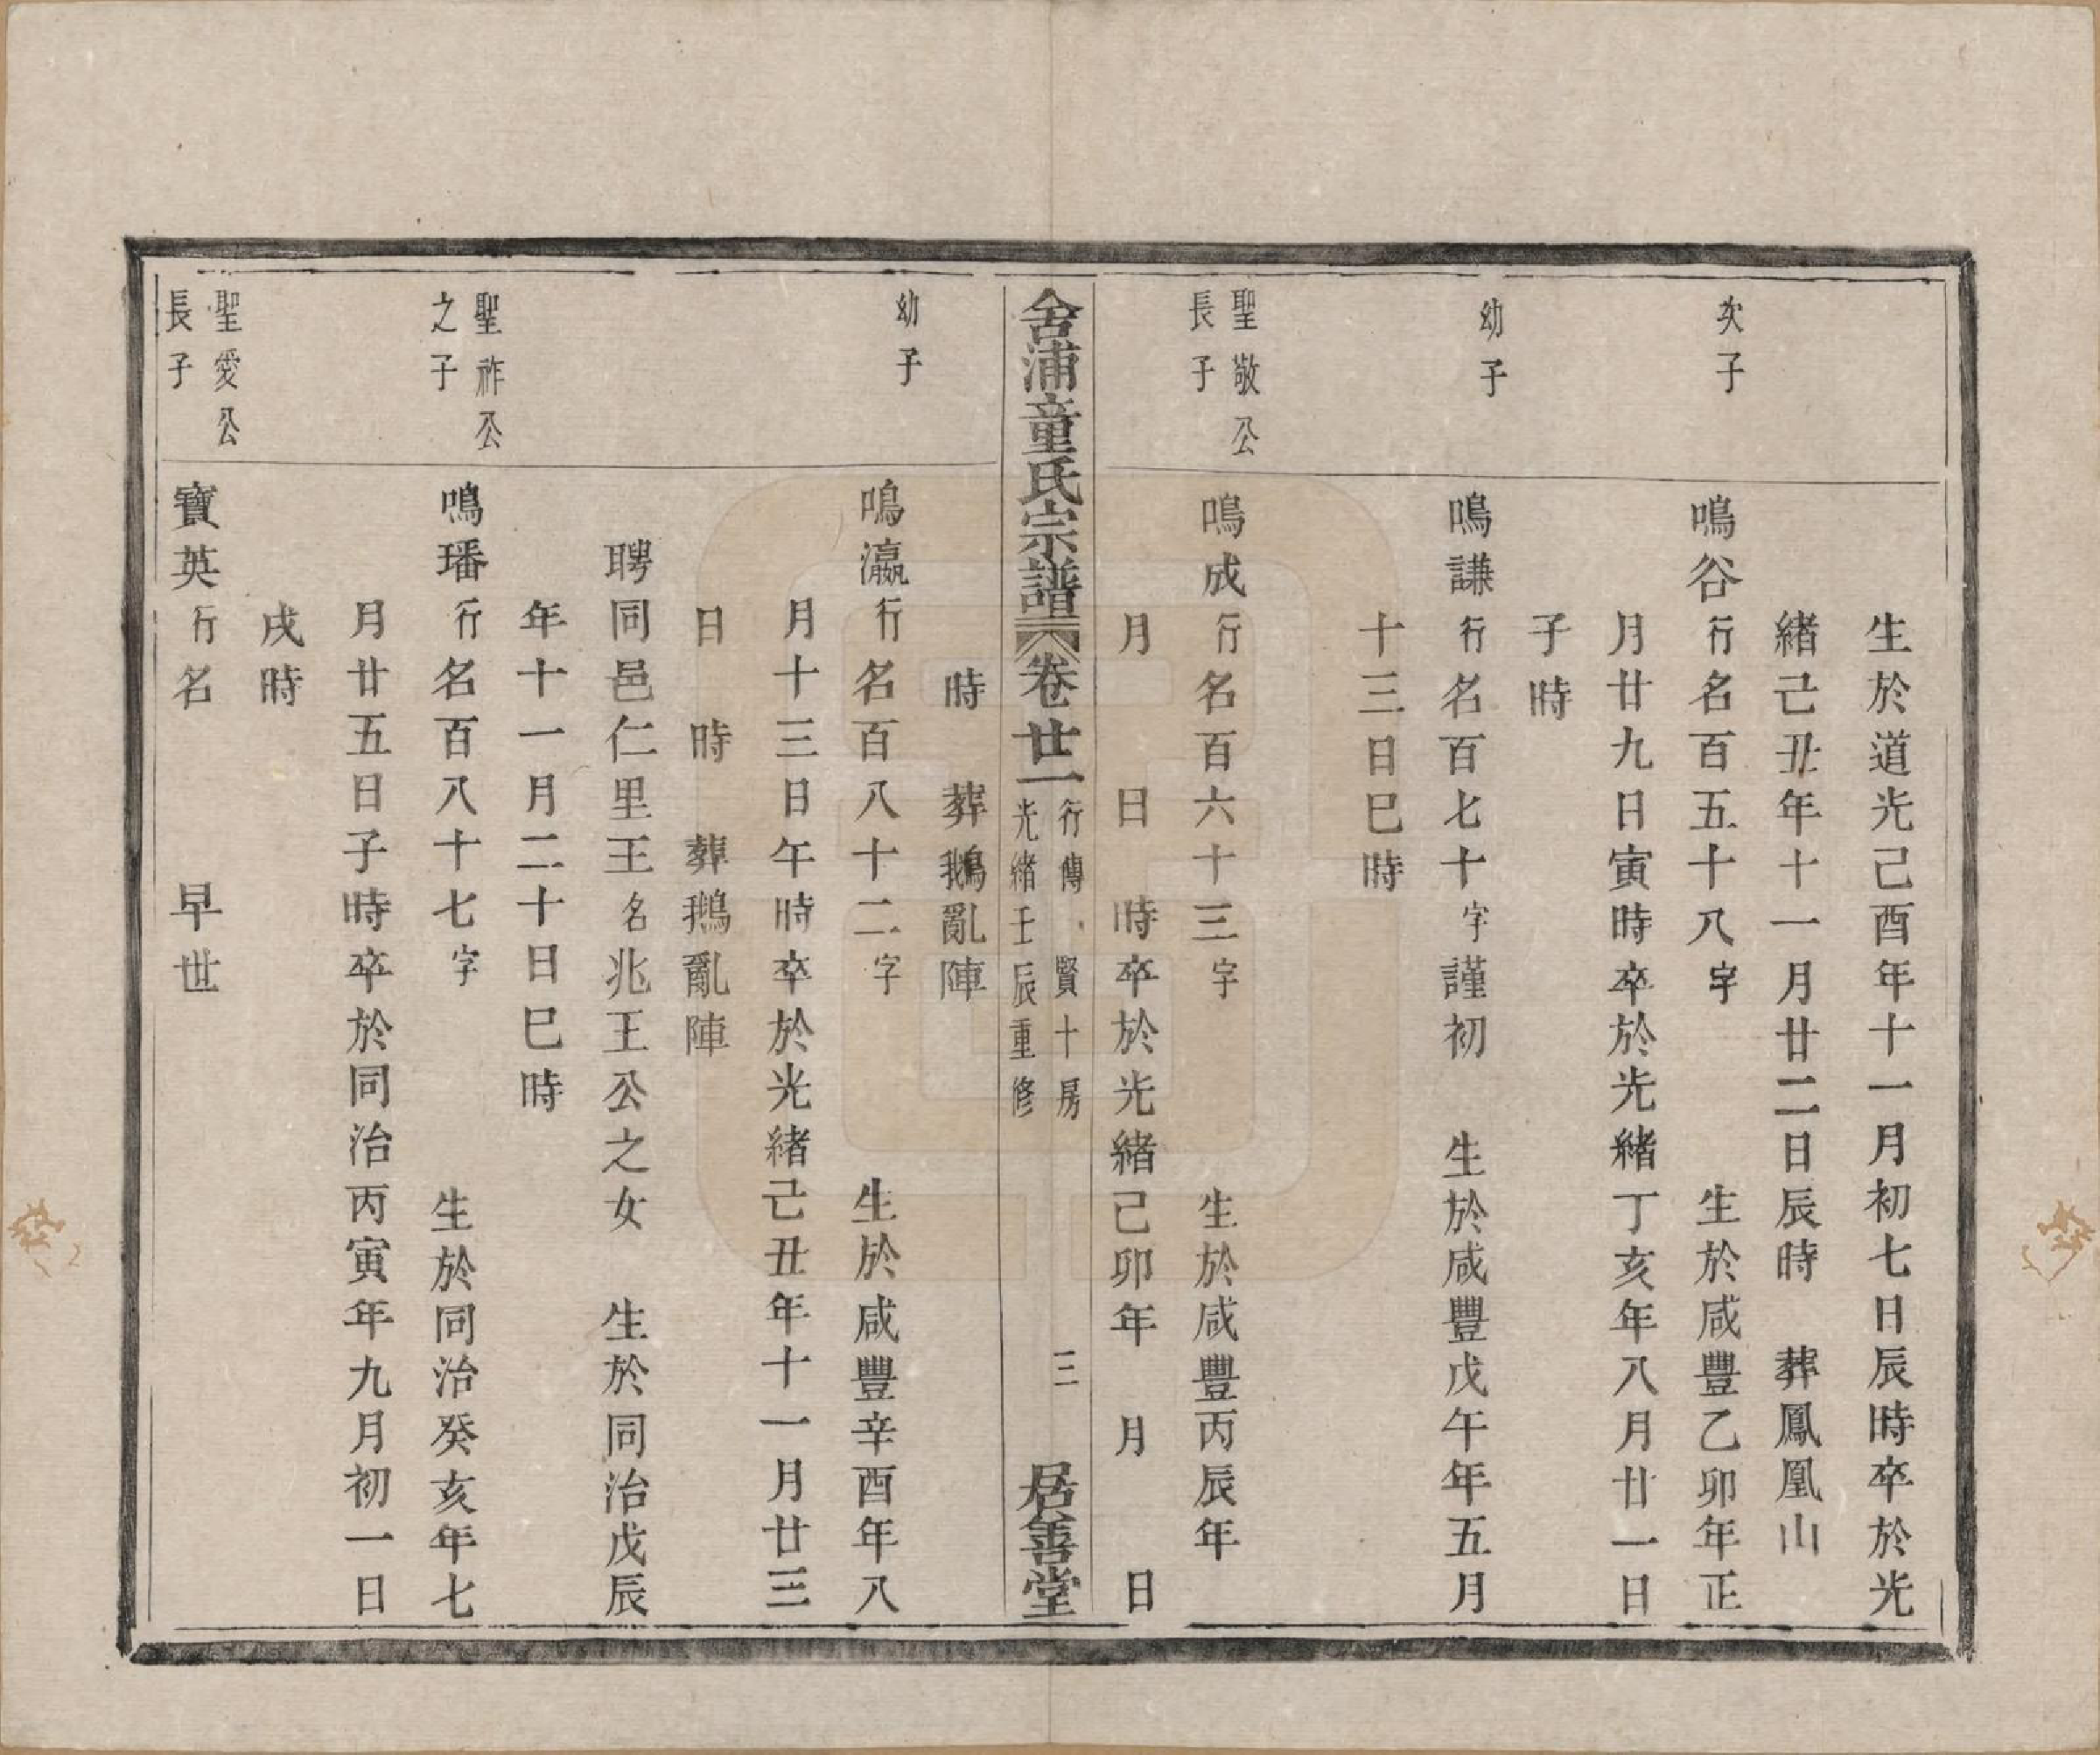 生於道光己酉年十一月初七日辰時卒於光
緒己丑年十一月廿二日辰時　葬鳳凰山
次子
鳴谷行名百五十八字　生於咸豐乙卯年正
月廿九日寅時卒於光緒丁亥年八月廿一日
子時
幼子
鳴謙行名百七十字謹初　生於咸豐戊午年五月
十三日巳時
聖敬公
長子
鳴成行名百六十三字　生於咸豐丙辰年
月　日　時卒於光緒己卯年　月　日
舍浦童氏宗譜　卷廿一　行傳　賢十房　三　居善堂
光緒壬辰重修
時　葬鵝亂陣
幼子
鳴瀛行名百八十二字　生於咸豐辛酉年八
月十三日午時卒於光緒己丑年十一月廿三
日　時　葬鵝亂陣
聘同邑仁里王名兆王公之女　生於同治戊辰
年十一月二十日巳時
聖祚公
之子
鳴璠行名百八十七字　生於同治癸亥年七
月廿五日子時卒於同治丙寅年九月初一日
戌時
聖愛公
長子
寶英行名　早世